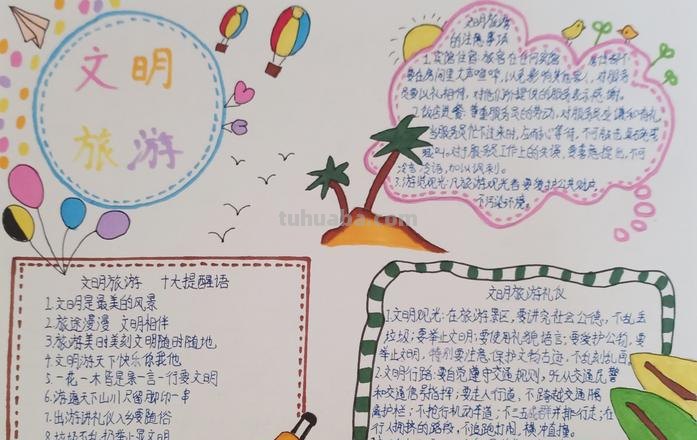 文明
旅游
文明旅游
的注意事项
1.宾馆住宿:旅客在任何宾馆
要在房间里大声喧哗,以免影响其他客人,对服务
员要以礼相待,对他们所提供的服务表示感谢。
2.饭店进餐:尊重服务员的劳动,对服务员应谦和有礼
当服务员忙不过来时,应耐心等待,不可敲击桌碗或
喊叫。对于服务员工作上的失误,要善意提出,不可
冷言冷语,加以讽刺。
3.游览观光:凡旅游观光者要爱护公共财产
不污染环境。
tuhuaba.com
文明旅游 十大提醒语
1.文明是最美的风景
2.旅途漫漫 文明相伴
3.旅游美时美刻文明随时随地
4.文明游天下快乐你我他
5.一花一木皆是景一言一行要文明
6.游遍天下山川只留脚印一串
7.出游讲礼仪入乡要随俗
8.垃圾不乱扔举止显文明
文明旅游礼仪
1.文明观光:在旅游景区,要讲究社会公德,不乱丢
垃圾;要举止文明;要使用礼貌语言;要爱护公物,要
举止文明,特别要注意保护文物古迹,不乱刻乱画
2.文明行路:要自觉遵守交通规则,听从交通民警
和交通信号指挥;要走人行道,不跨越交通隔
离护栏;不抢行机动车道;不三五成群并排行走;在
行人拥挤的路段,不追跑打闹、横冲直撞。